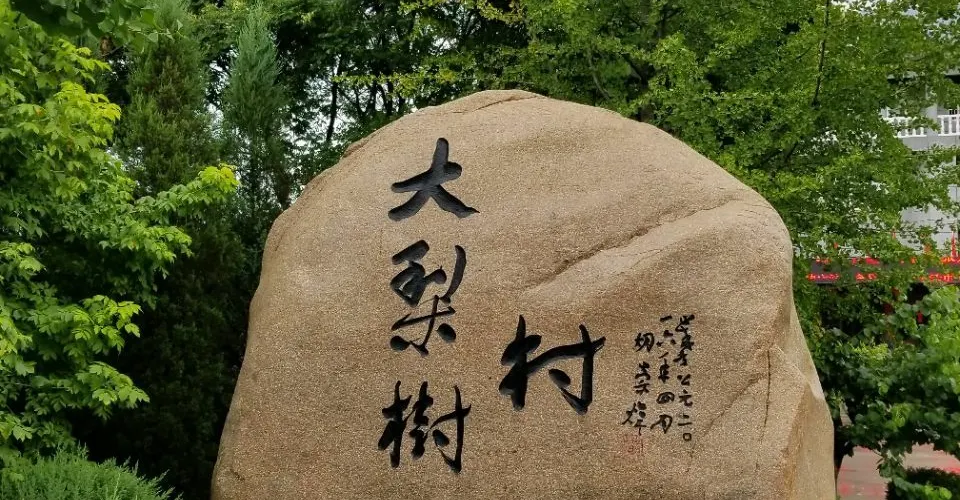 大梨樹
村
公元二〇
一六年四月